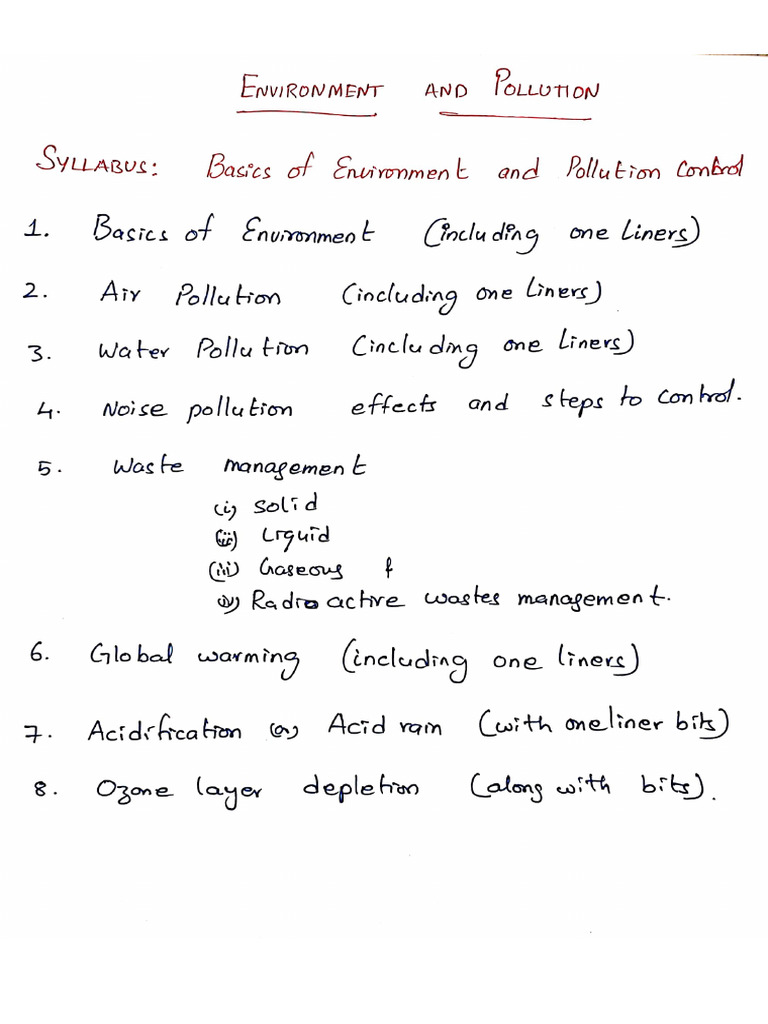 ENVIRONMENT AND POLLUTION
SYLLABUS: Basics of Environment and Pollution Control
1. Basics of Environment (including one liners)
2. Air Pollution (including one liners)
3. Water Pollution (including one liners)
4. Noise pollution effects and steps to control.
5. Waste management
(i) Solid
(ii) Liquid
(iii) Gaseous &
(iv) Radio active wastes management.
6. Global warming (including one liners)
7. Acidification (or) Acid rain (with oneliner bits)
8. Ozone layer depletion (along with bits).